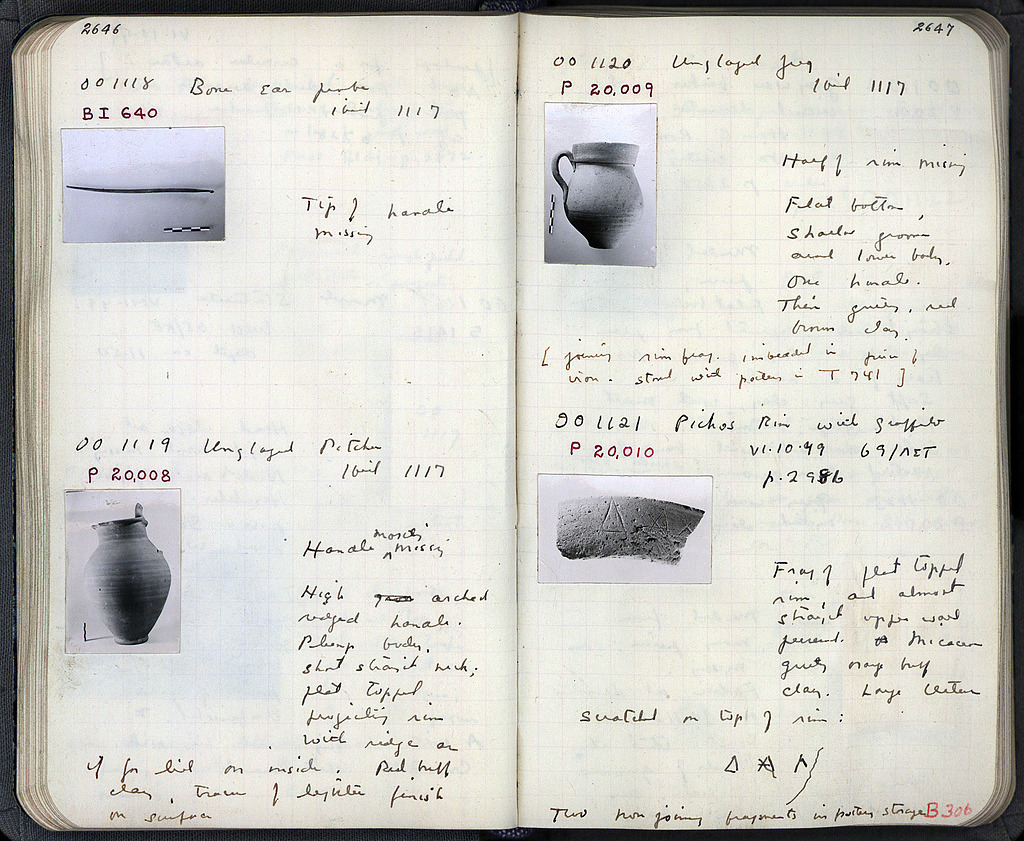 2646
OO 1118 Bone ear probe
BI 640
ibid 1117
Tip of handle
missing
OO 1119 Unglazed Pitcher
P 20,008
ibid 1117
mostly
Handle ^ missing
High arched
ridged handle.
Plump body,
short straight neck;
flat topped
projecting rim
with ridge as
if for lid on inside. Red buff
clay, traces of lighter finish
on surface
2647
OO 1120 Unglazed Jug
P 20,009
ibid 1117
Half of rim missing
Flat bottom,
Shallow grooves
around lower body.
One handle.
Thin gritty, red
brown clay.
[ joining rim frag. imbedded in piece of
iron. stored with pottery in T 741 ]
OO 1121 Pithos Rim with graffito
P 20,010
VI.10.49 69/ΛΣΤ
p. 2986
Frag of flat topped
rim, and almost
straight upper wall
preserved. Micaceous
gritty orange buff
clay. Large letters
scratched on top of rim:
Δ Λ
Two non joining fragments in pottery storage B 306